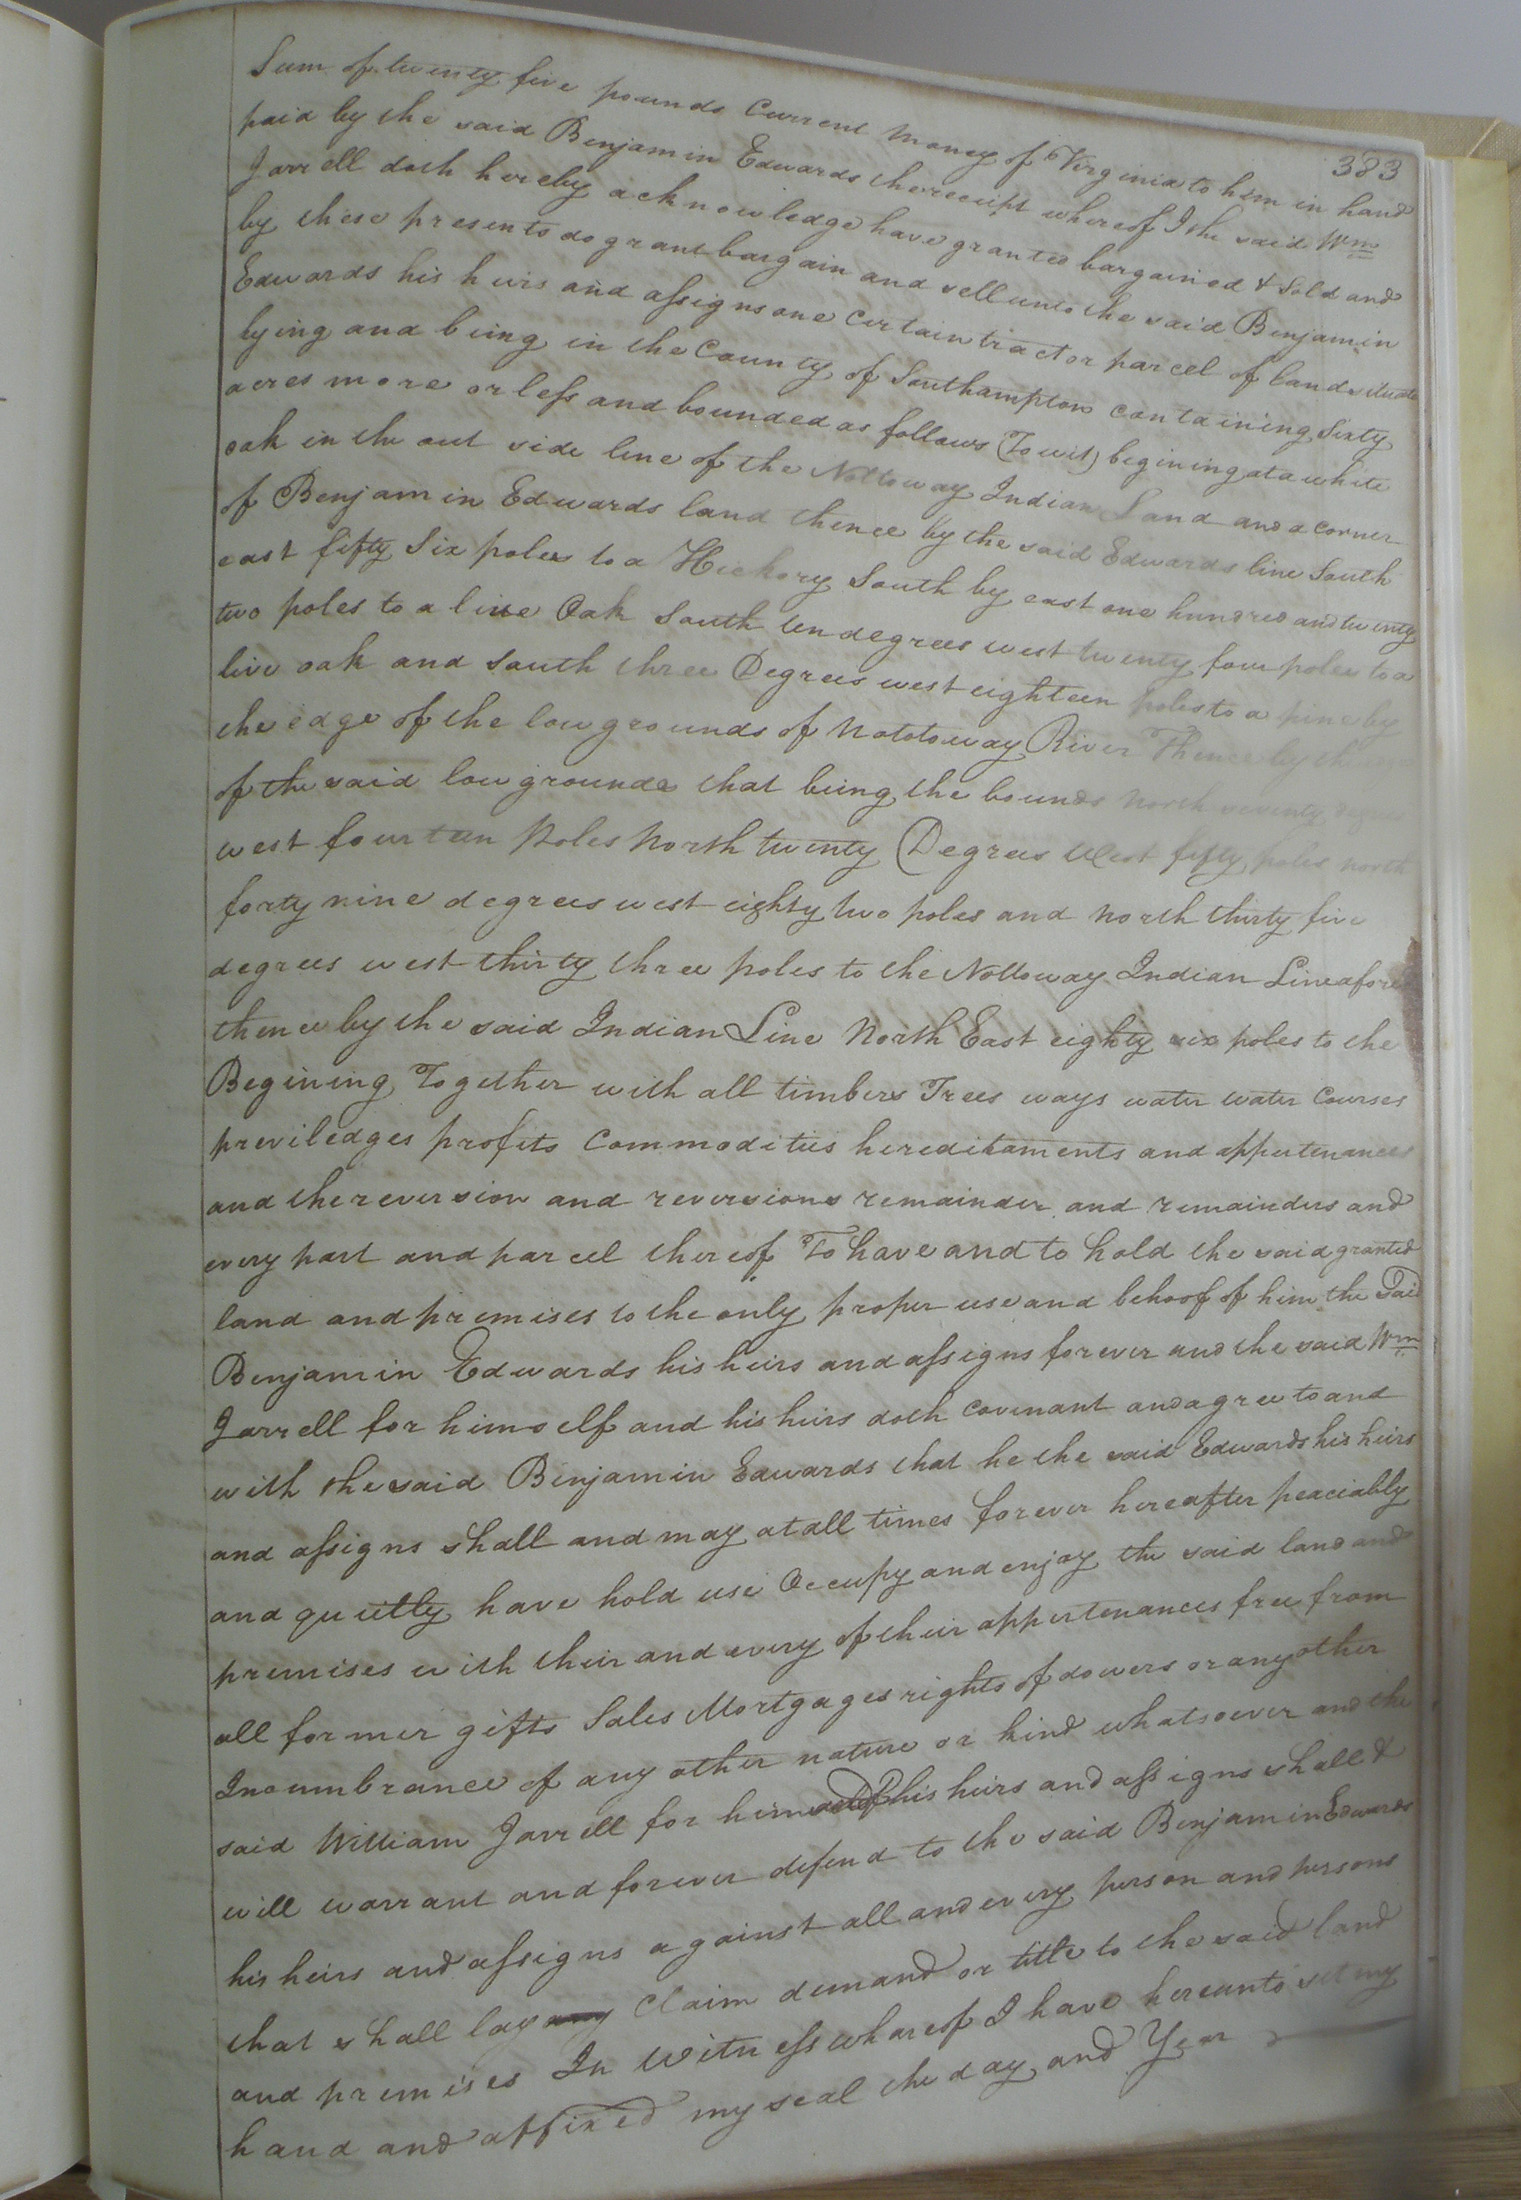 383
Sum of twenty five pounds Current Money of Virginia to him in hand
paid by the said Benjamin Edwards the receipt whereof I the said Wm
Jarrell doth hereby acknowledge have granted bargained & Sold and
by these presents do grant bargain and sell unto the said Benjamin
Edwards his heirs and assigns one certain tract or parcel of land situate
lying and being in the County of Southampton containing Sixty
acres more or less and bounded as follows (To wit) begining at a white
oak in the out side line of the Nottoway Indian Land and a corner
of Benjamin Edwards land thence by the said Edwards line South
east fifty Six poles to a Hickory South by east one hundred and twenty
two poles to a live Oak South ten degrees west twenty four poles to a
live oak and South three Degrees west eighteen poles to a pine by
the edge of the low grounds of Nottoway River Thence by the
of the said low grounds that being the bounds North seventy
west fourteen Poles North twenty Degrees West fifty poles north
forty nine degrees west eighty two poles and North thirty five
degrees west thirty three poles to the Nottoway Indian Line afore
thence by the said Indian Line North East eighty six poles to the
Begining Together with all timbers Trees ways water water Courses
previledges profits Commodities hereditaments and appertenances
and the reversion and reversions remainder and remainders and
every part and parcel thereof To have and to hold the said granted
land and premises to the only proper use and behoof of him the Said
Benjamin Edwards his heirs and assigns forever and the said Wm
Jarrell for himself and his heirs doth covenant and agree to and
with the said Benjamin Edwards that he the said Edwards his heirs
and assigns shall and may at all times forever hereafter peaciably
and quietly have hold use Occupy and enjoy the said land and
premises with their and every of their appertenances free from
all former gifts Sales Mortgages rights of dowers or any other
Incumbrance of any other nature or kind whatsoever and the
said William Jarrell for himself his heirs and assigns shall &
will warrant and forever defend to the said Benjamin Edwards
his heirs and assigns against all and every person and persons
that shall lay any Claim demand or title to the said land
and premises In Witness whareof I have hereunto set my
hand and affixed my seal the day and Year